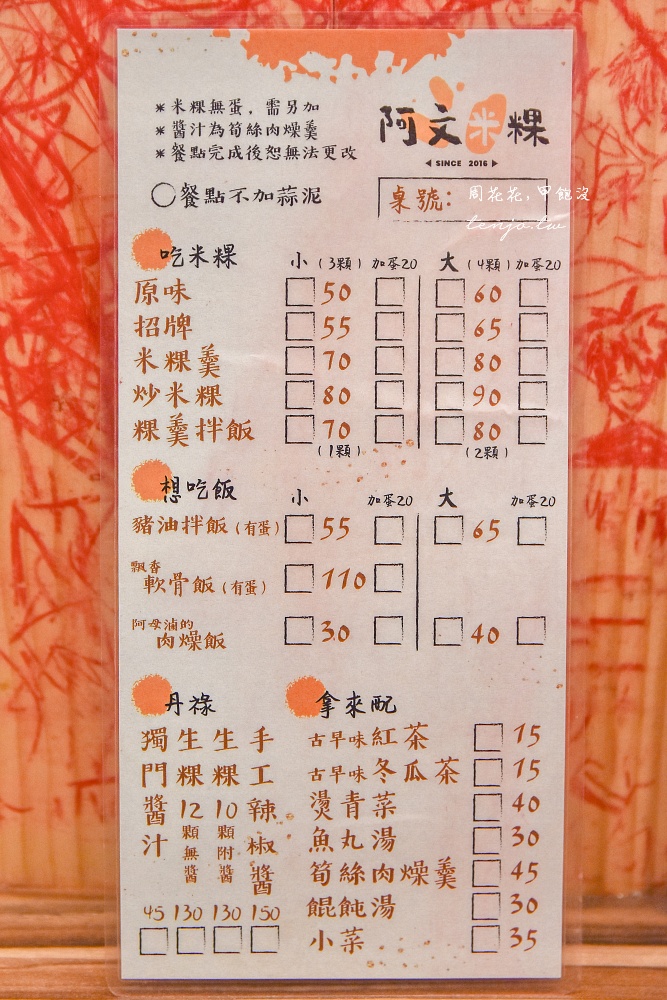 ※ 米粿無蛋，需另加
※ 醬汁為筍絲肉燥羹
※ 餐點完成後恕無法更改
◯ 餐點不加蒜泥
阿文米粿
SINCE 2016
桌號：
周花花，甲飽沒
tenjo.tw
吃米粿 小 (3顆) 加蛋20 大 (4顆) 加蛋20
原味 50 60
招牌 55 65
米粿羹 70 80
炒米粿 80 90
粿羹拌飯 70 80
(1顆) (2顆)
想吃飯 小 加蛋20 大 加蛋20
豬油拌飯 (有蛋) 55 65
飄香
軟骨飯 (有蛋) 110
阿母滷的
肉燥飯 30 40
丹祿
獨門醬汁 45
生粿12顆無醬 130
生粿10顆附醬 130
手工辣椒醬 150
拿來配
古早味紅茶 15
古早味冬瓜茶 15
燙青菜 40
魚丸湯 30
筍絲肉燥羹 45
餛飩湯 30
小菜 35